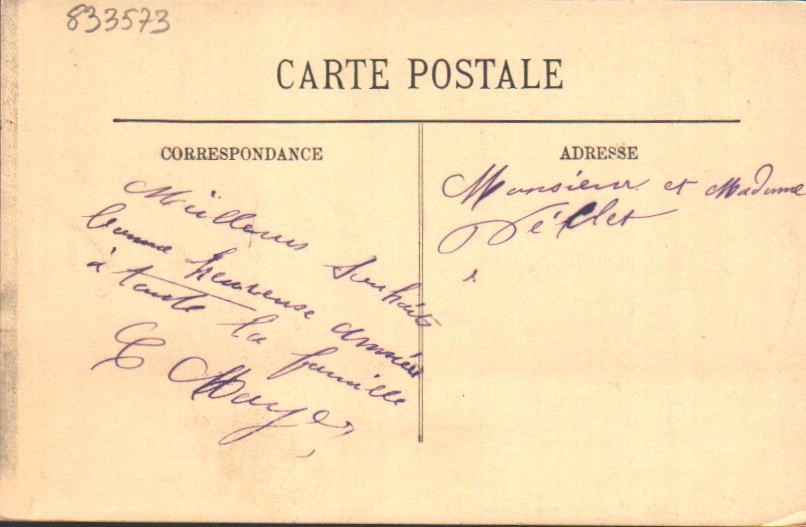 833573
CARTE POSTALE
CORRESPONDANCE
Meilleurs Souhaits
bonne heureuse année
à toute la famille
E Mayer
ADRESSE
Monsieur et Madame